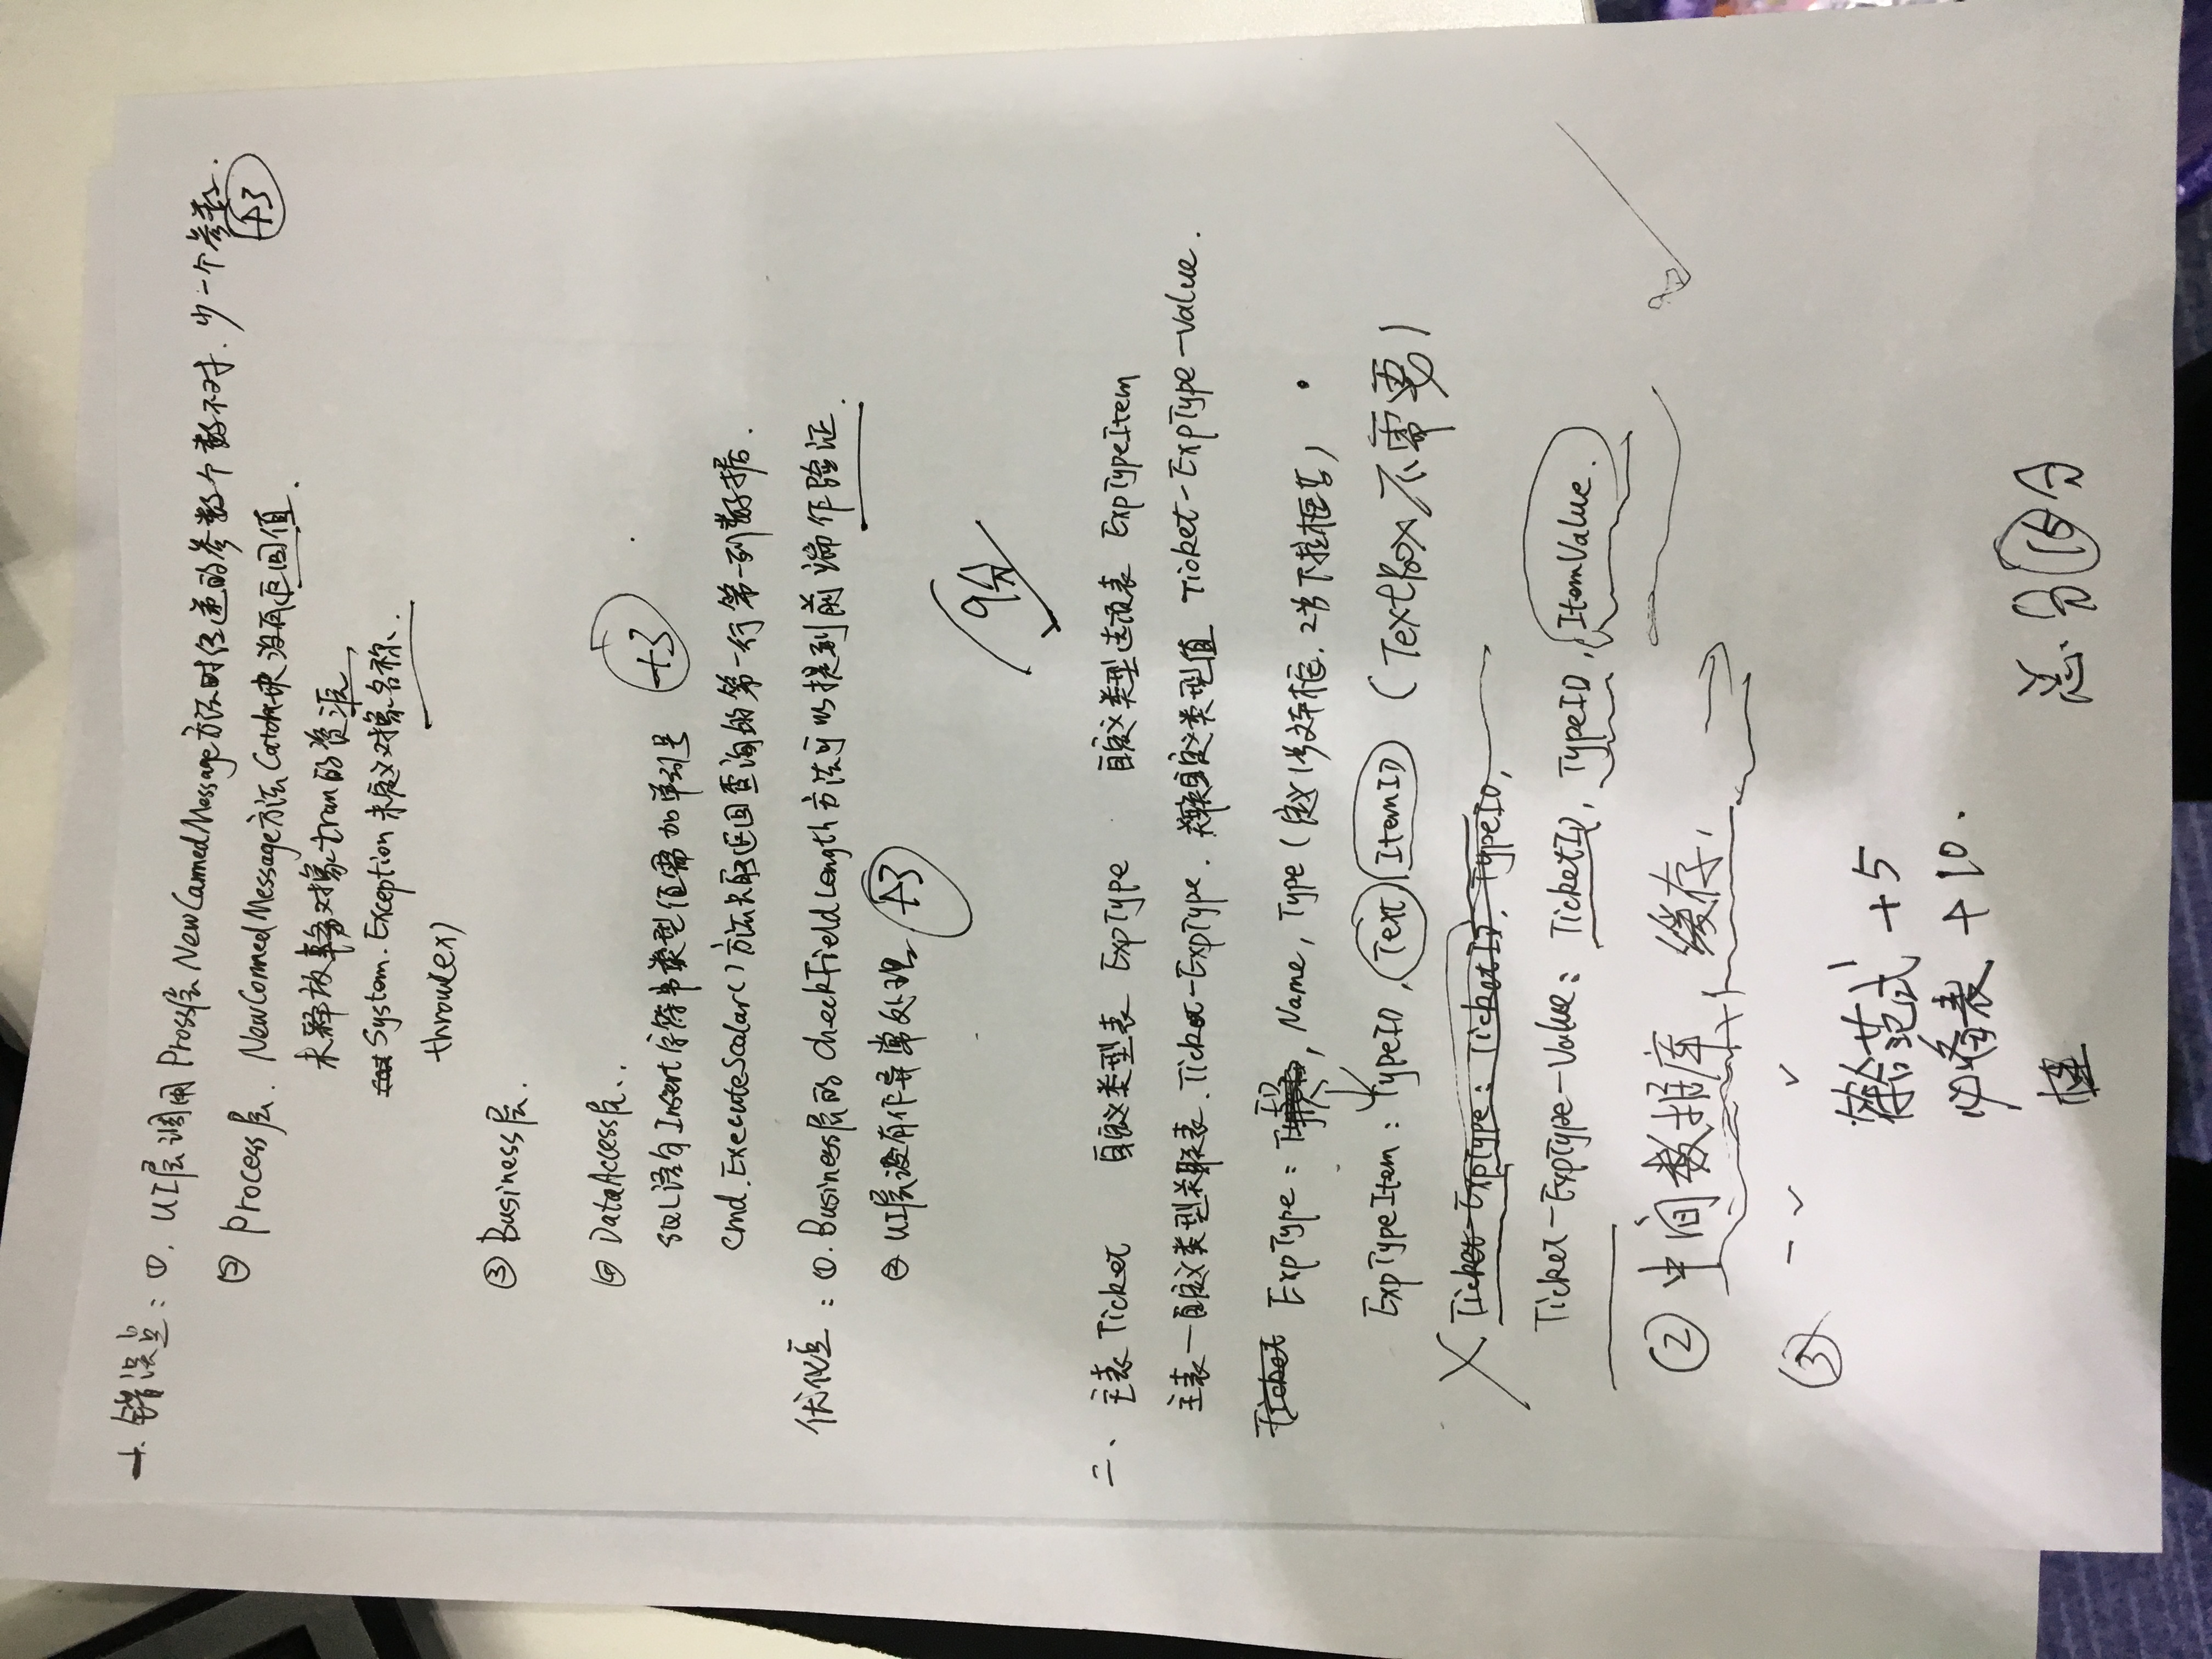 一. 错误点：①. UI层调用Pross层NewCannedMessage方法时传递的参数个数不对. 少一个参数.
+3
② Process层. NewConnedMessage方法Catch块没有返回值.
未释放事务对象tran的资源,
System.Exception 未定义对象名称.
throw(ex)
③ Business层.
④ DataAccess层..
SQL语句Insert字符串类型值需加单引号 +3
cmd.ExecuteScalar()方法只能返回查询的第一行第一列数据.
优化点：①. Business层的CheckFieldLength方法可以提到前端作验证.
② UI层没有作异常处理 +3
9分
二、主表 Ticket 自定义类型表 ExpType 自定义类型选项表 ExpTypeItem
主表一自定义类型关联表.Ticket-ExpType. 关联自定义类型值 Ticket-ExpType-Value.
Ticket ExpType: ID, Name, Type (定义1为文本框. 2为下拉框等)
ExpTypeItem: TypeID, Text ItemID (TextBox 不需要)
Ticket-ExpType: TicketID, TypeID,
Ticket-ExpType-Value: TicketID, TypeID, ItemValue.
② 中间数据库, 缓存,
③
符合范式 +5
必备表 +10.
总分 分